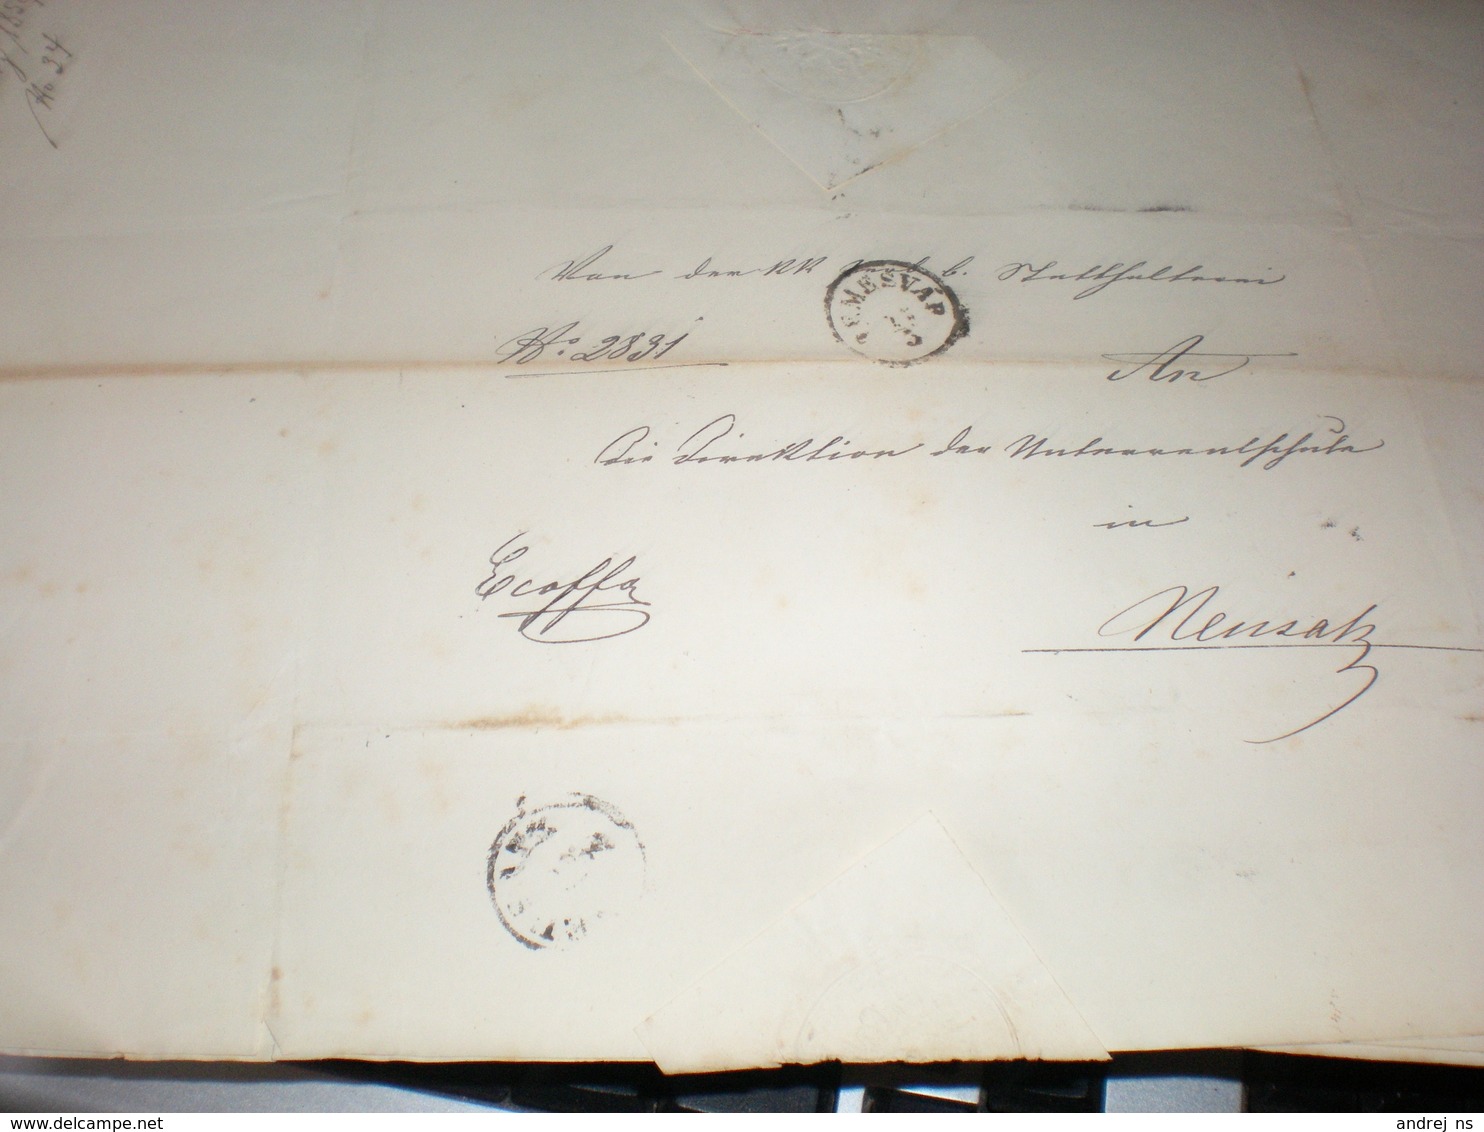 No 34
Von der KK b. Statthalterei
TEMESVÁR
No. 2831
An
die Direktion der Unterrealschule
in
Ecoffa
Neusatz
delcampe.net
andrej_ns